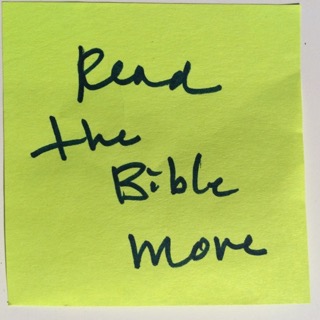 Read
the
Bible
more